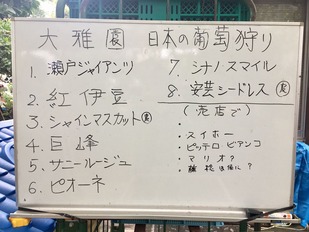 大雅園 日本の葡萄狩り
1. 瀬戸ジャイアンツ
2. 紅伊豆
3. シャインマスカット
4. 巨峰
5. サニールージュ
6. ピオーネ
7. シナノスマイル
8. 安芸シードレス
(売店で)
・スイホー
・ピッテロ ビアンコ
・マリオ?